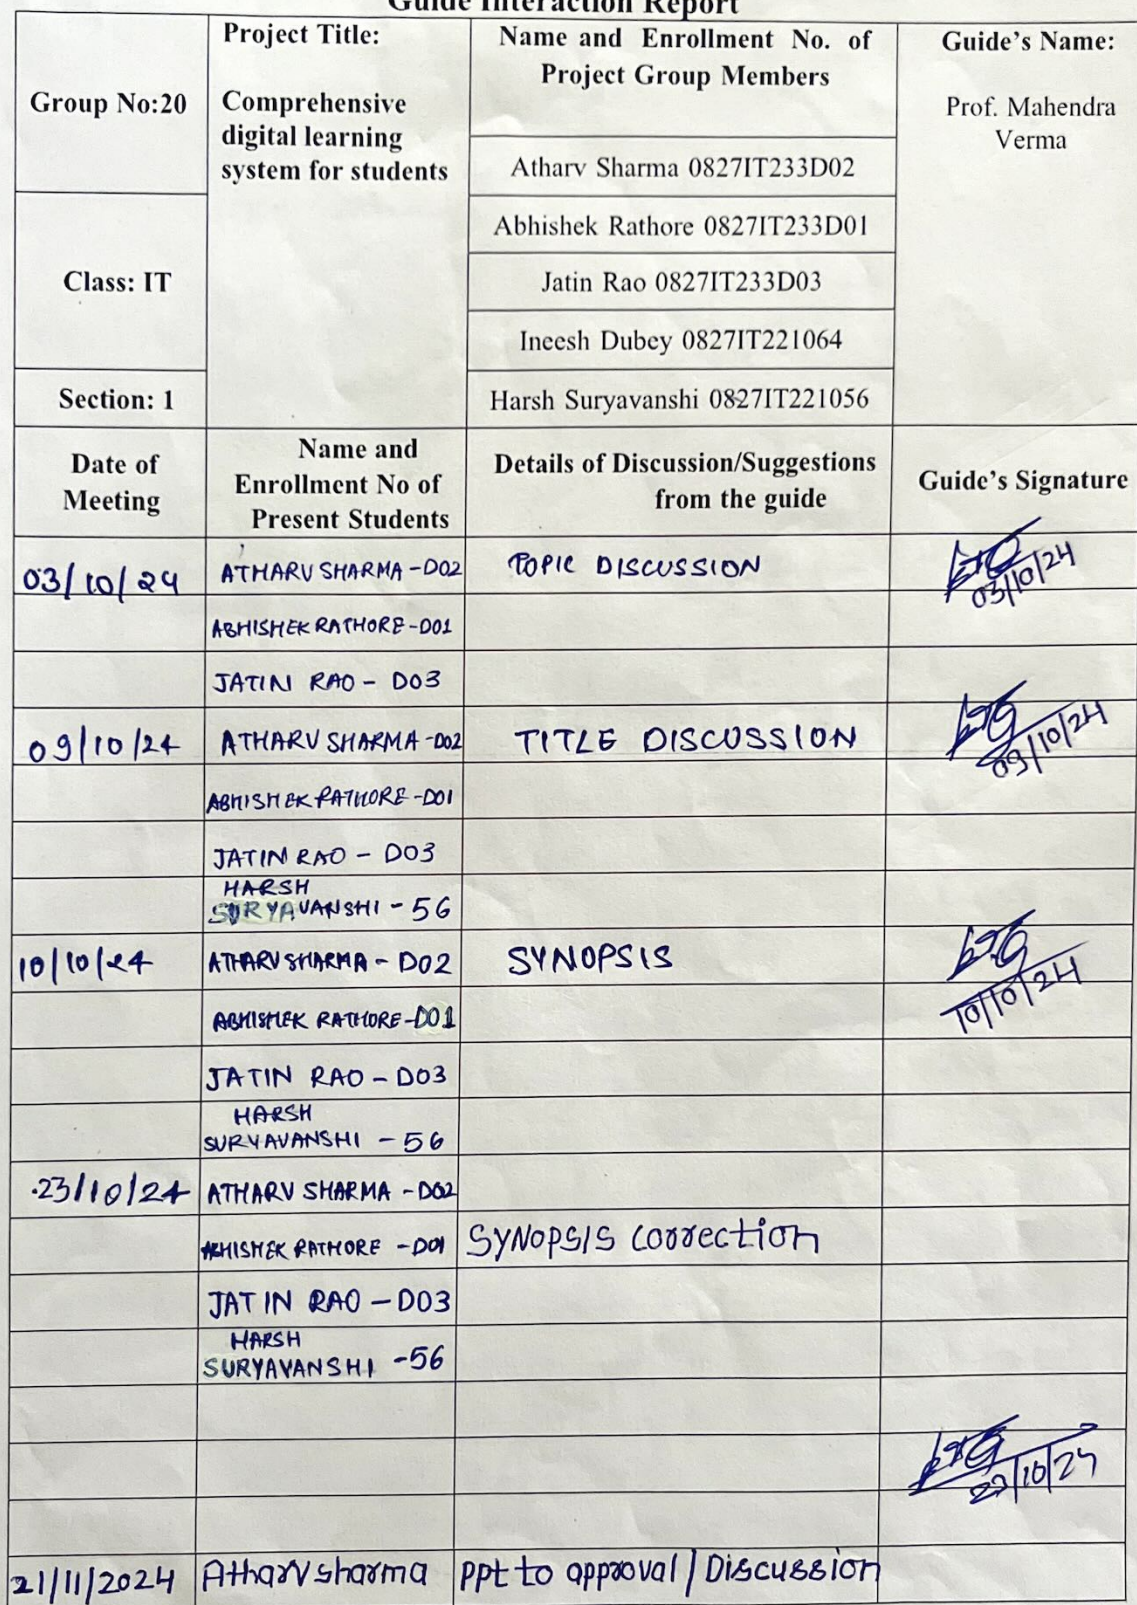 Guide Interaction Report
Group No:20
Project Title:
Comprehensive
digital learning
system for students
Name and Enrollment No. of
Project Group Members
Guide's Name:
Prof. Mahendra
Verma
Atharv Sharma 0827IT233D02
Class: IT
Abhishek Rathore 0827IT233D01
Jatin Rao 0827IT233D03
Ineesh Dubey 0827IT221064
Section: 1
Harsh Suryavanshi 0827IT221056
Date of
Meeting
Name and
Enrollment No of
Present Students
Details of Discussion/Suggestions
from the guide
Guide's Signature
03/10/24 ATHARV SHARMA - D02 TOPIC DISCUSSION
03/10/24
ABHISHEK RATHORE - D01
JATIN RAO - D03
09/10/24 ATHARV SHARMA - D02 TITLE DISCUSSION
09/10/24
ABHISHEK RATHORE - D01
JATIN RAO - D03
HARSH
SURYAVANSHI - 56
10/10/24 ATHARV SHARMA - D02 SYNOPSIS
10/10/24
ABHISHEK RATHORE - D01
JATIN RAO - D03
HARSH
SURYAVANSHI - 56
23/10/24 ATHARV SHARMA - D02
ABHISHEK RATHORE - D01 SYNOPSIS correction
JATIN RAO - D03
HARSH
SURYAVANSHI - 56
23/10/24
21/11/2024 Atharv sharma ppt to approval / Discussion